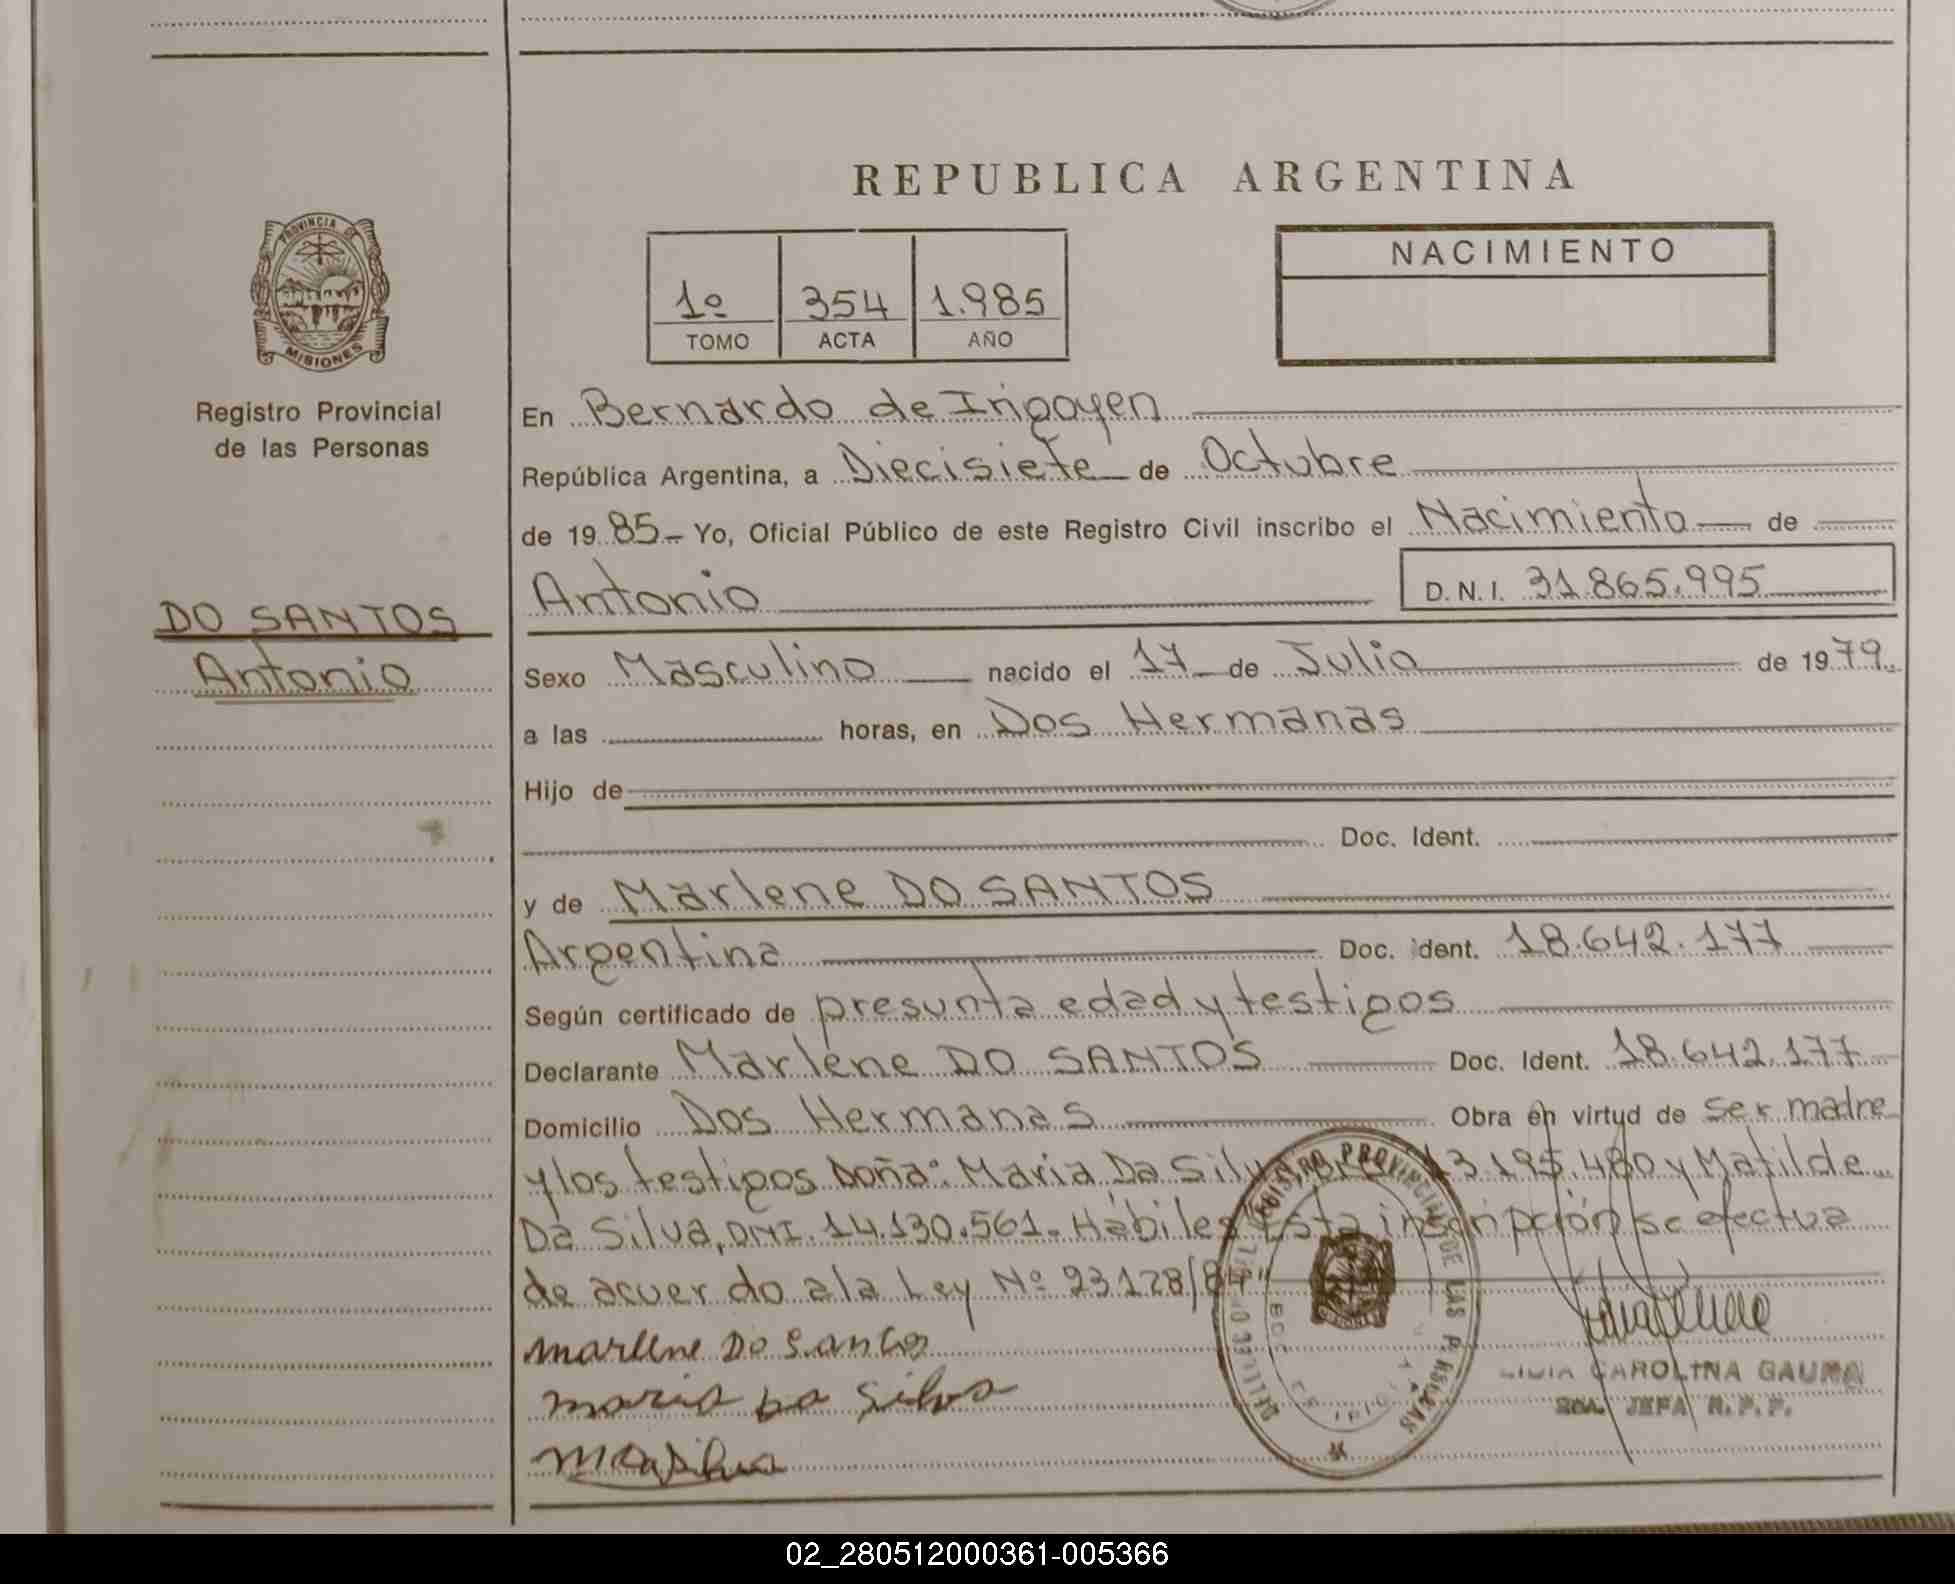 REPUBLICA ARGENTINA
PROVINCIA DE
MISIONES
Registro Provincial
de las Personas
1º 354 1.985
TOMO ACTA AÑO
NACIMIENTO
En Bernardo de Irigoyen
República Argentina, a Diecisiete de Octubre
de 19 85 Yo, Oficial Público de este Registro Civil inscribo el Nacimiento de
Antonio D.N.I. 31.865.995
DO SANTOS
Antonio
Sexo Masculino nacido el 17 de Julio de 1979
a las horas, en Dos Hermanas
Hijo de
Doc. Ident.
y de Marlene DO SANTOS
Argentina Doc. ident. 18.642.177
Según certificado de presunta edad y testigos
Declarante Marlene DO SANTOS Doc. Ident. 18.642.177
Domicilio Dos Hermanas Obra en virtud de ser madre
y los testigos Doña: Maria Da Silva 13.195.480 y Matilde
Da Silva, DNI. 14.130.561. Hábiles Esta inscripción se efectua
de acuerdo a la Ley Nº 23128/84"
Marlene Do Santos
Maria Da Silva
REGISTRO PROVINCIAL DE LAS PERSONAS
CAROLINA GAUNA
JEFA R.P.P.
02_280512000361-005366